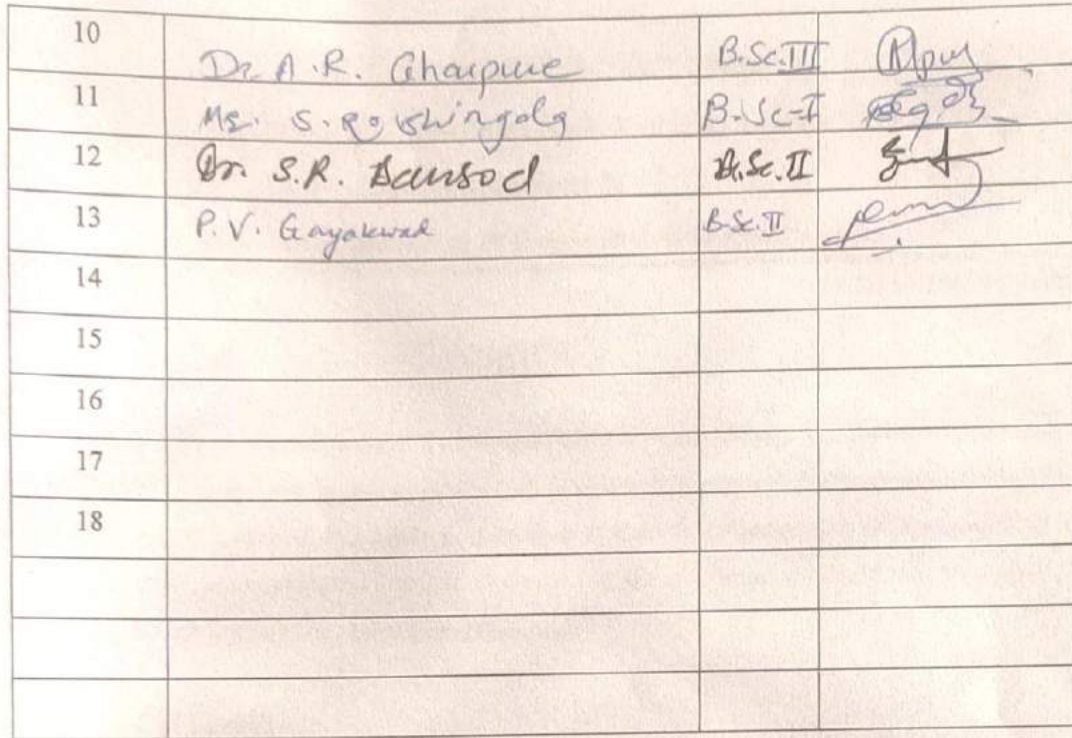 10 Dr. A.R. Ghaipure B.Sc.III
11 Mr. S. B.Sc-I
12 Dr. S.R. Bansod B.Sc.II
13 P.V. Gayakwad B.Sc.II
14
15
16
17
18